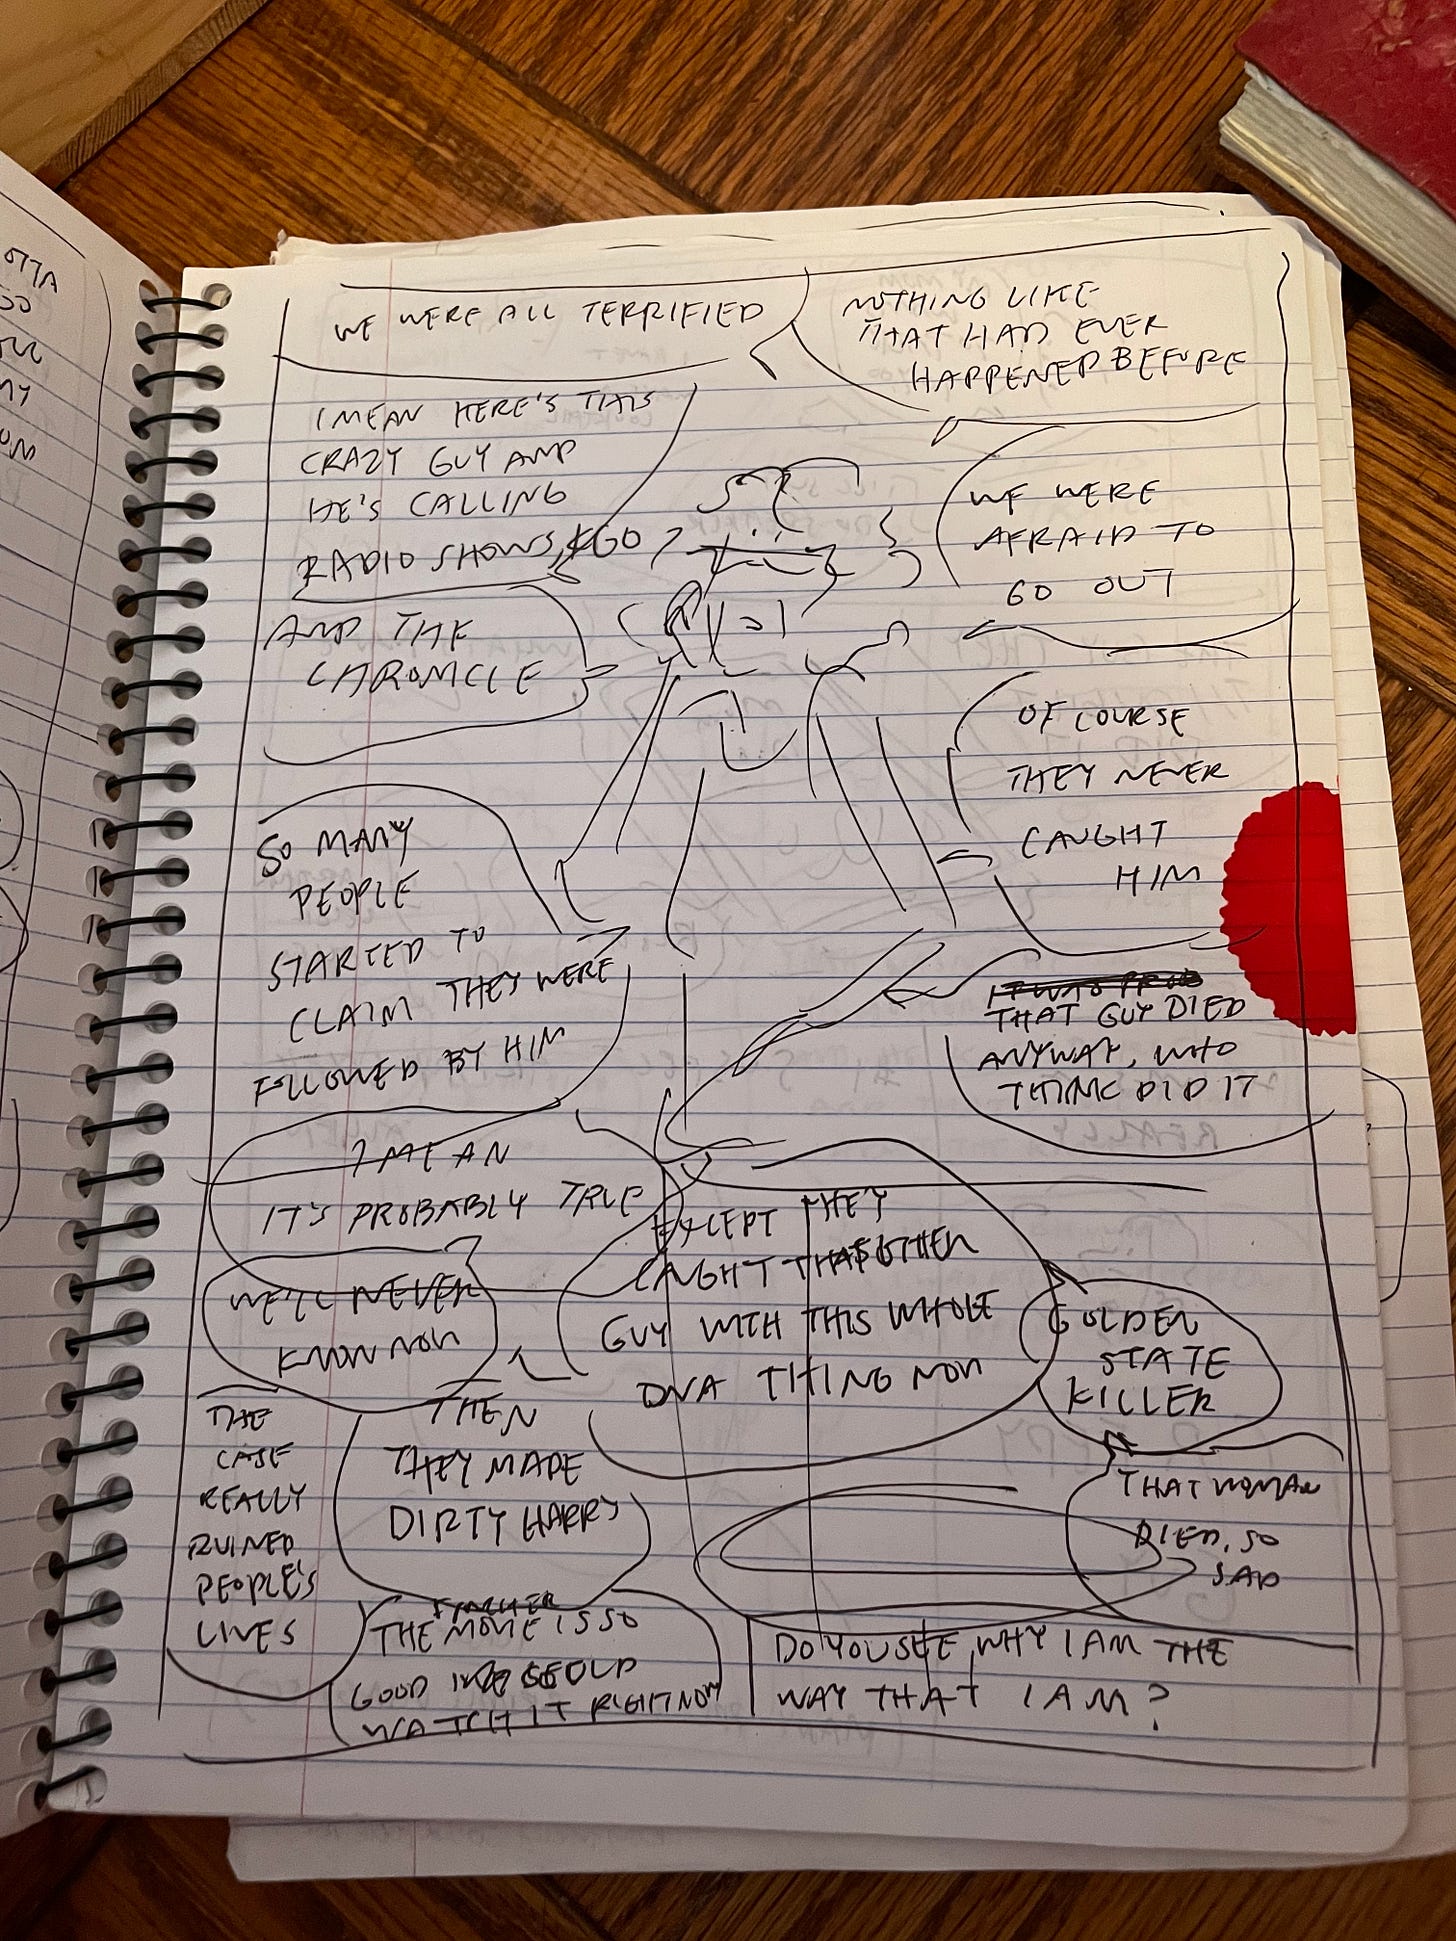 WE WERE ALL TERRIFIED
NOTHING LIKE
THAT HAD EVER
HAPPENED BEFORE
I MEAN HERE'S THIS
CRAZY GUY AND
HE'S CALLING
RADIO SHOWS, KGO
AND THE
CHRONICLE
WE WERE
AFRAID TO
GO OUT
OF COURSE
THEY NEVER
CAUGHT
HIM
SO MANY
PEOPLE
STARTED TO
CLAIM THEY WERE
FOLLOWED BY HIM
THAT GUY DIED
ANYWAY, WHO
THINK DID IT
I MEAN
IT'S PROBABLY TRUE
WE'LL NEVER
KNOW NOW
EXCEPT THEY
CAUGHT THAT OTHER
GUY WITH THIS WHOLE
DNA THING NOW
GOLDEN
STATE
KILLER
THAT WOMAN
DIED, SO
SAD
THE
CASE
REALLY
RUINED
PEOPLE'S
LIVES
THEN
THEY MADE
DIRTY HARRY
THE MOVIE IS SO
GOOD
WATCH IT RIGHT NOW
DO YOU SEE WHY I AM THE
WAY THAT I AM?